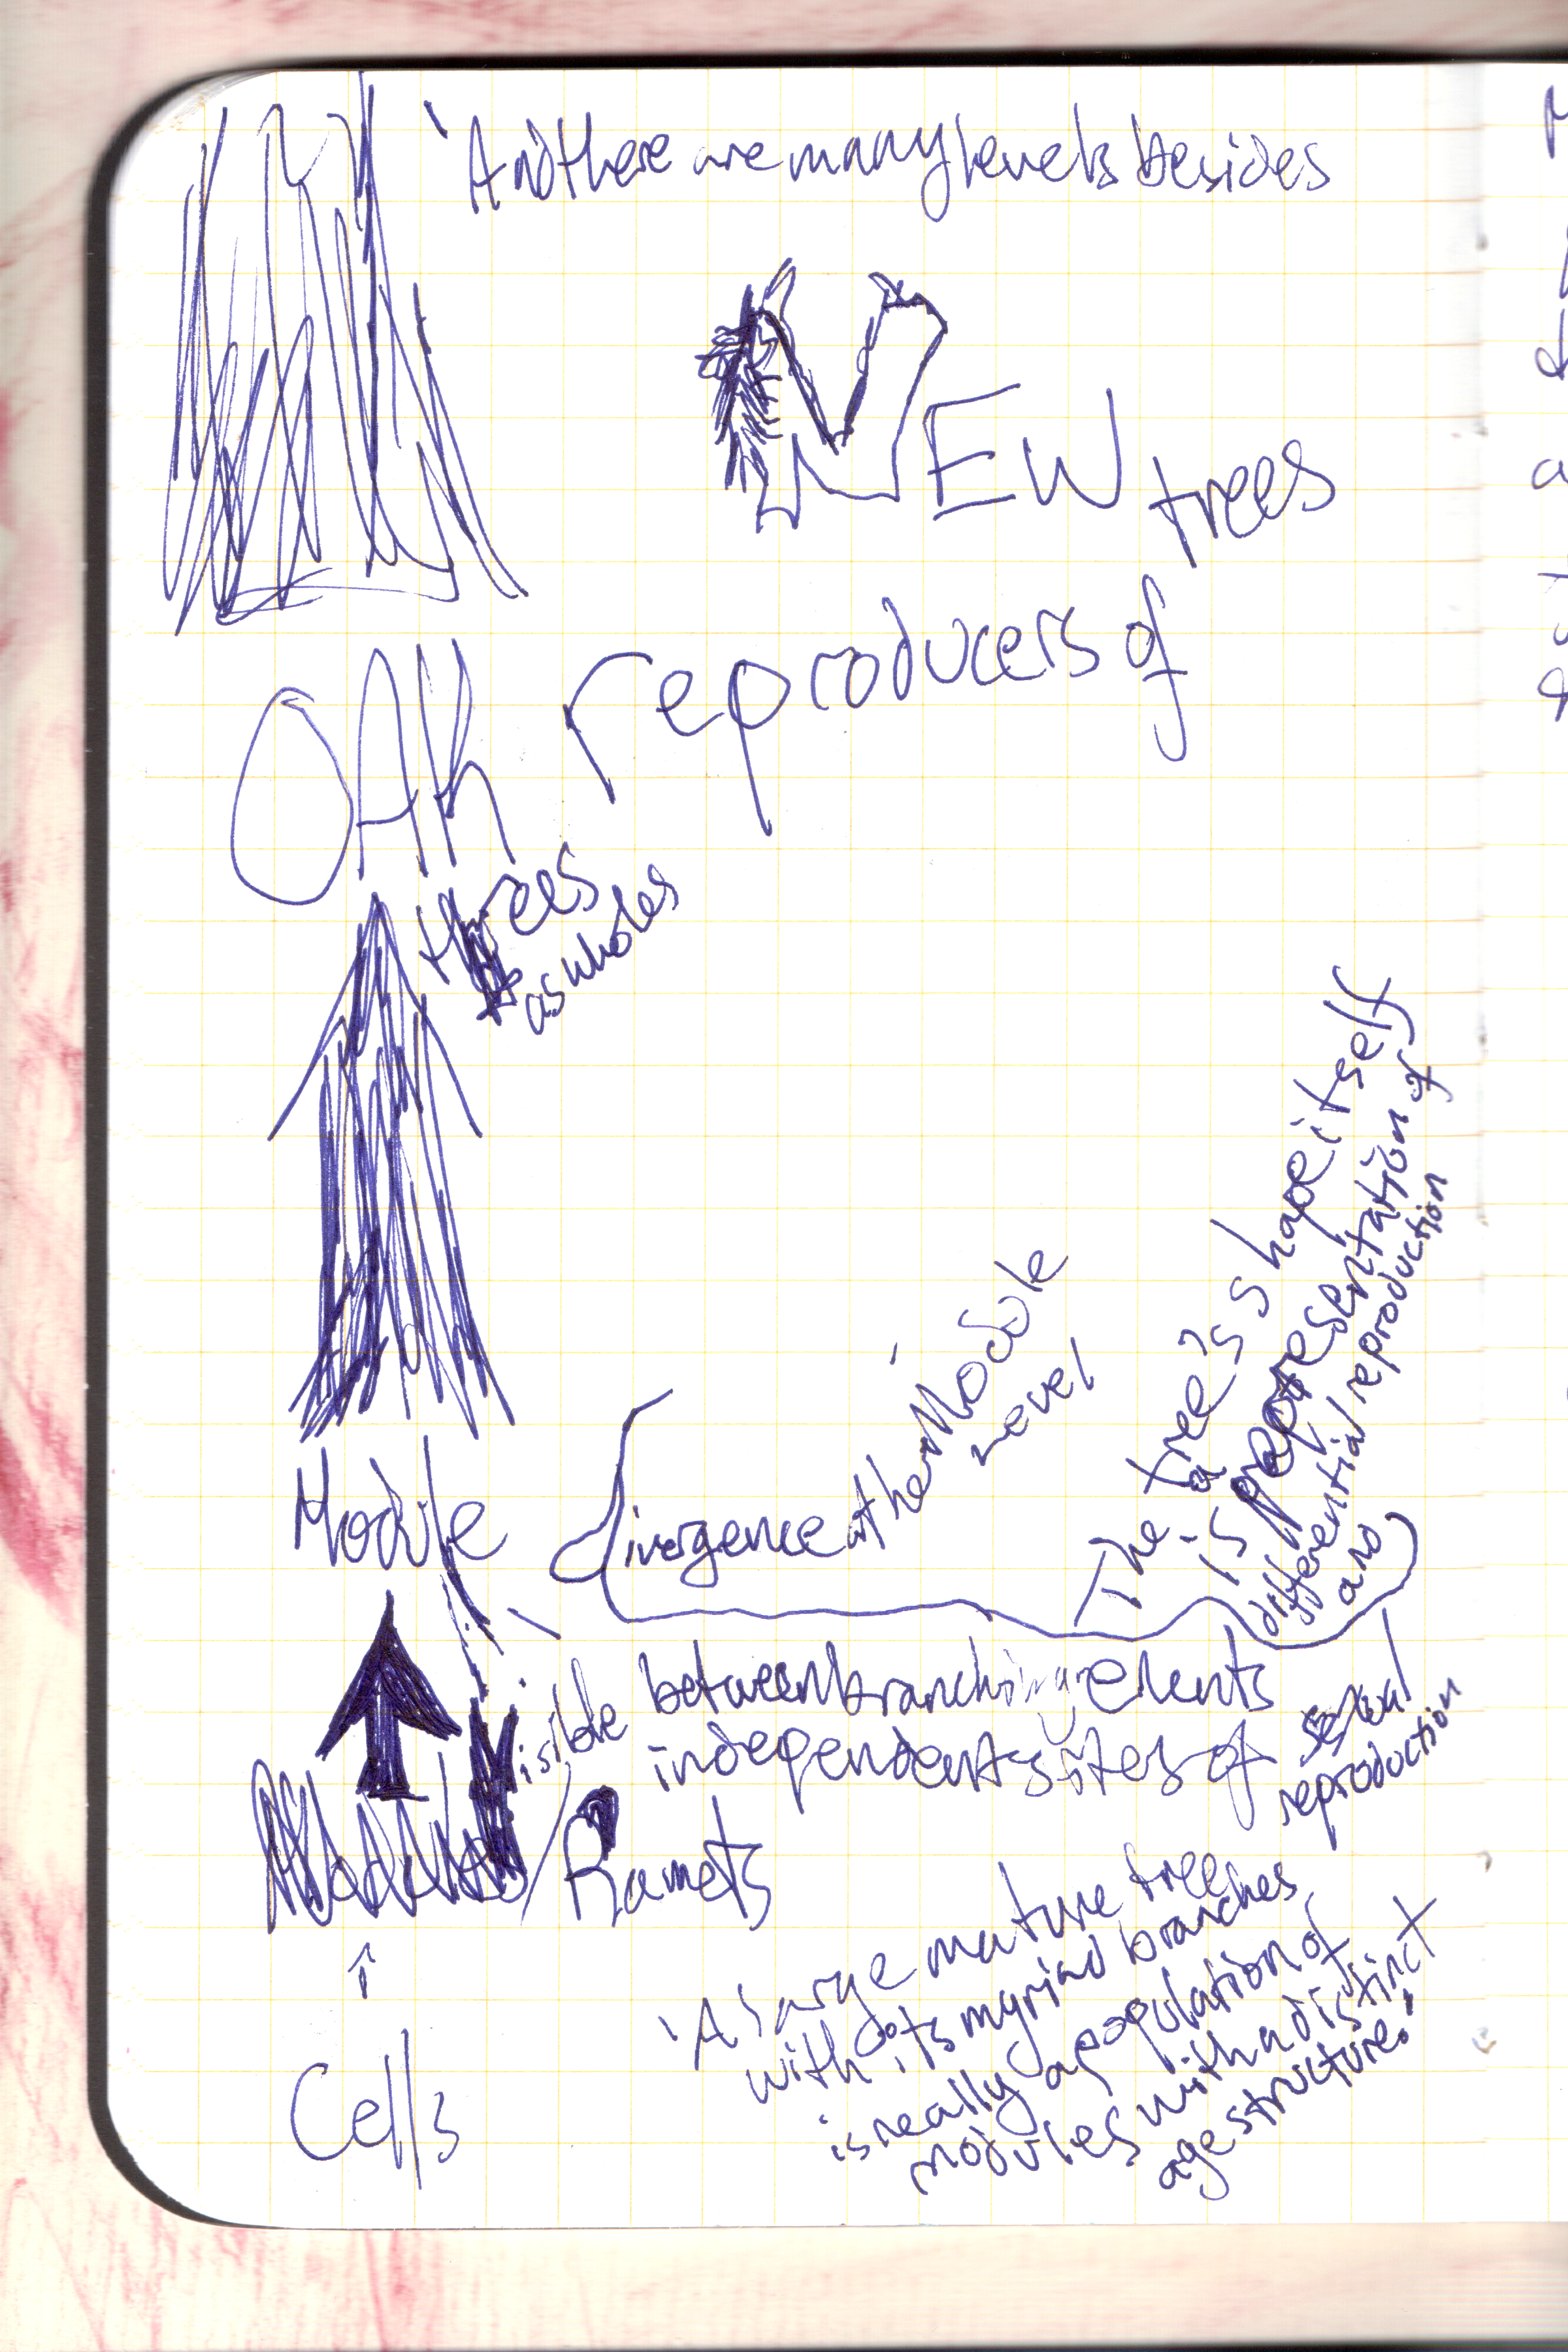 'And there are many levels besides
NEW
trees
reproducers of
OAK
trees
as wholes
Divergence at the Module
level
The tree's shape itself
is a representation of
differential reproduction
and
Module
Visible between branching elements
independent sites of sexual
reproduction
Modules / Ramets
'A large mature tree
with its myriad branches
is really a population of
modules with a distinct
age structure.'
↑
Cells